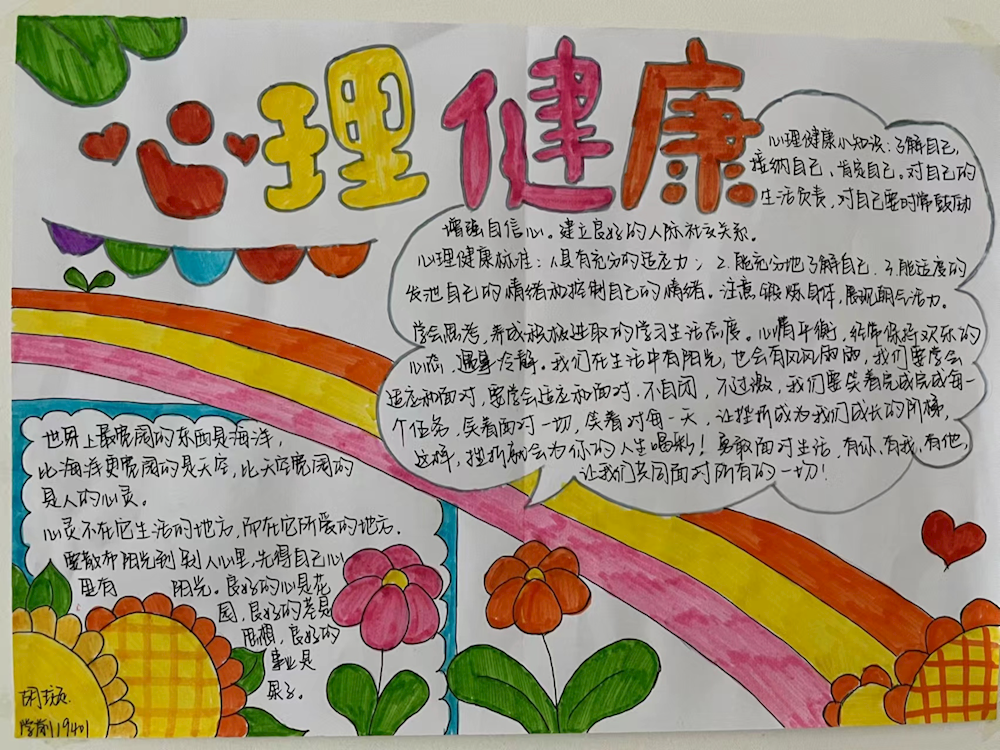 心理健康
心理健康小知识：了解自己，
接纳自己、肯定自己，对自己的
生活负责，对自己要时常鼓励
增强自信心。建立良好的人际社交关系．
心理健康标准：1具有充分的适应力；2.能充分地了解自己．3.能适度的
发泄自己的情绪和控制自己的情绪。注意锻炼身体，展现朝气活力．
学会思考，养成积极进取的学习生活态度。心情平衡，经常保持欢乐的
心态，遇事冷静。我们在生活中有阳光，也会有风风雨雨，我们要学会
适应和面对，要学会适应和面对．不自闭，不过激，我们要笑着完成完成每一
个任务，笑着面对一切，笑着对每一天，让挫折成为我们成长的阶梯，
这样，挫折就会为你的人生喝彩！勇敢面对生活，有你、有我、有他，
让我们共同面对所有的一切！
世界上最宽阔的东西是海洋，
比海洋更宽阔的是天空，比天空宽阔的
是人的心灵。
心灵不在它生活的地方，而在它所爱的地方．
要散布阳光到别人心里，先得自己心
里有阳光。良好的心是花
园，良好的
思想，良好的
事业是
果子。
学前19401